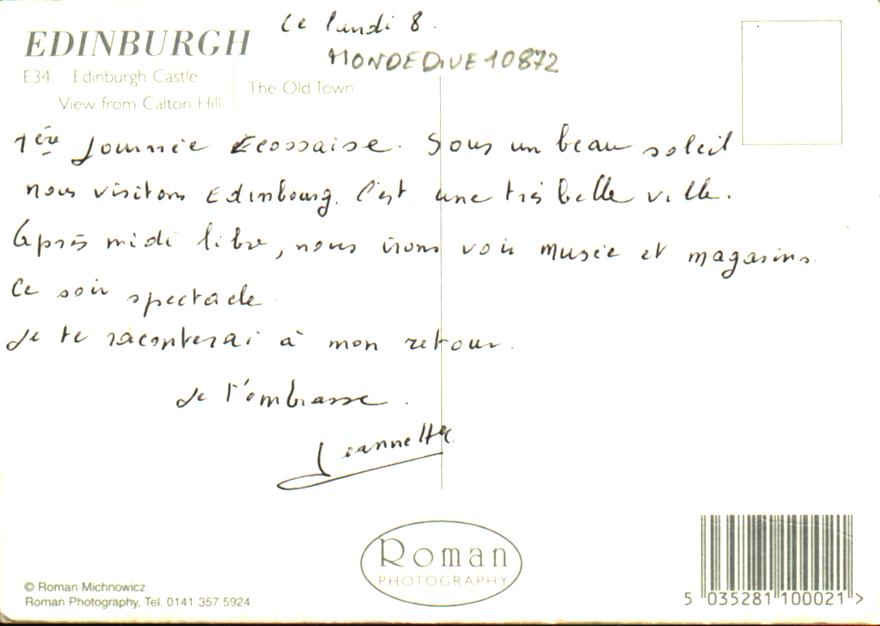 Le lundi 8.
EDINBURGH
MONDEDIVE10872
E34. Edinburgh Castle
View from Calton Hill
The Old Town
1ère Journée Ecossaise. Sous un beau soleil
nous visitons Edinbourg. C'est une très belle ville.
Après midi libre, nous irons voir musée et magasins.
Ce soir spectacle
Je te raconterai à mon retour.
Je t'embrasse.
Jeannette
Roman
PHOTOGRAPHY
© Roman Michnowicz
Roman Photography, Tel. 0141 357 5924
5 035281 100021 >